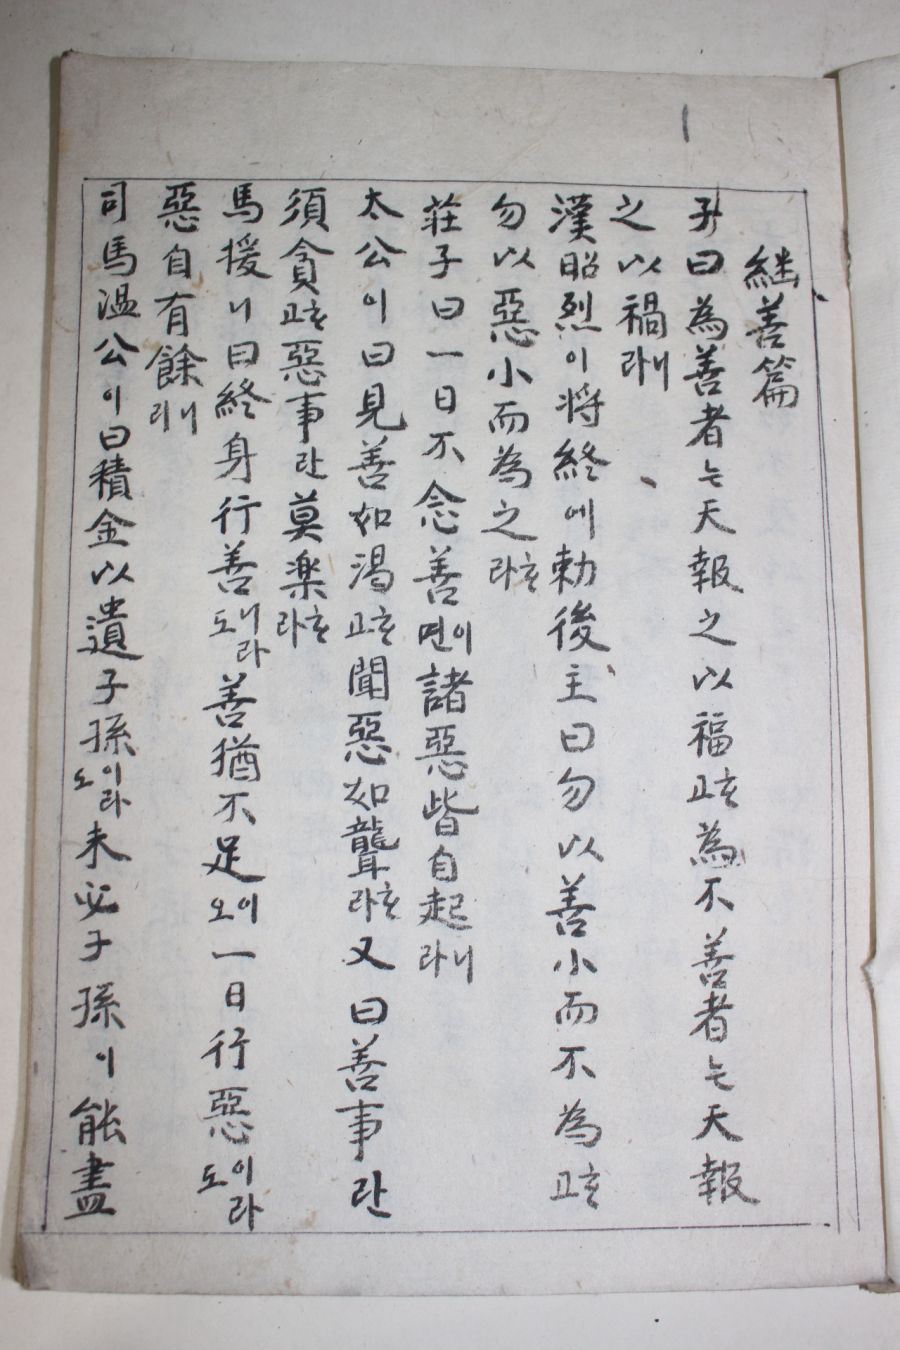 継善篇
子曰為善者는天報之以福하고為不善者는天報
之以禍라니
漢昭烈이将終에勅後主曰勿以善小而不為하고
勿以惡小而為之라하
荘子曰一日不念善면이諸惡皆自起라니
太公이曰見善如渴하고聞惡如聾라하又曰善事란
須貪하고惡事란莫楽라하
馬援니曰終身行善도니라善猶不足오이一日行惡도이라
惡自有餘라니
司馬温公이曰積金以遺子孫도이라未必子孫이能盡